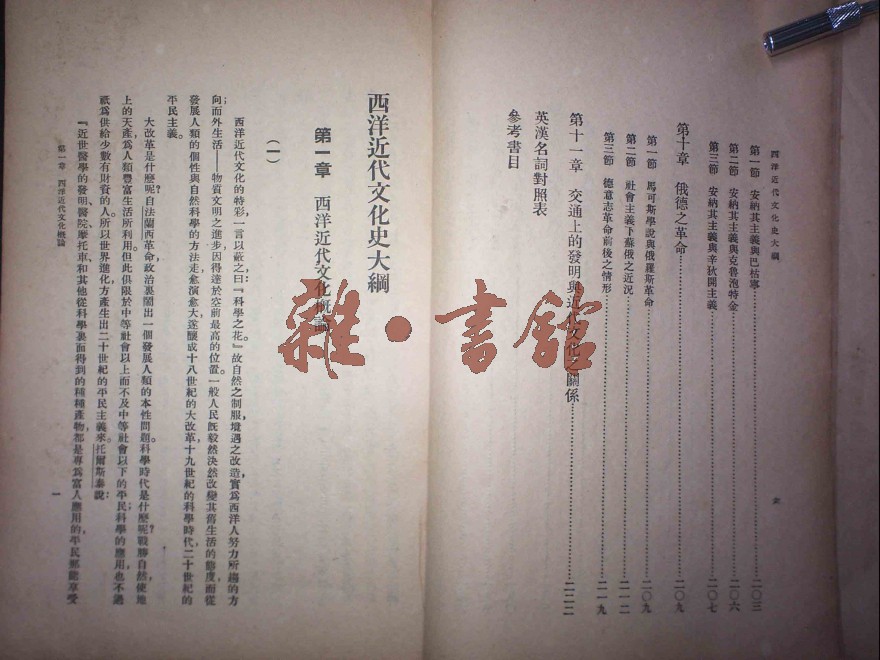 西洋近代文化史大綱
第一節 安納其主義與巴枯寧……二〇三
第二節 安納其主義與克魯泡特金……二〇六
第三節 安納其主義與辛狄開主義……二〇七
第十章 俄德之革命……二〇九
第一節 馬可斯學說與俄羅斯革命……二〇九
第二節 社會主義下蘇俄之近況……二一二
第三節 德意志革命前後之情形……二一九
第十一章 交通上的發明與近代文化之關係……二二二
英漢名詞對照表
參考書目
六
西洋近代文化史大綱
第一章 西洋近代文化概論
(一)
西洋近代文化的特彩,一言以蔽之曰:『科學之花。』故自然之制服,境遇之改造,實爲西洋人努力所趨的方
向;而外生活——物質文明之進步,因得達於空前最高的位置。一般人民既毅然決然改變其舊生活的態度而從
發展人類的個性與自然科學的方法走愈演愈大,遂釀成十八世紀的大改革,十九世紀的科學時代,二十世紀的
平民主義。
大改革是什麼呢?自法蘭西革命,政治裏鬧出一個發展人類的本性問題。科學時代是什麼呢?戰勝自然,使地
上的天產,爲人類豐富生活所利用。但此俱限於中等社會以上,而不及中等社會以下的平民;科學的應用,也不過
祇爲供給少數有財資的人。所以世界進化,方產生出二十世紀的平民主義來。托爾斯泰說:
『近世醫學的發明、醫院、摩托車、和其他從科學裏面得到的種種產物,都是專爲富人應用的,平民那能享受
第一章 西洋近代文化概論
一
雜·書館